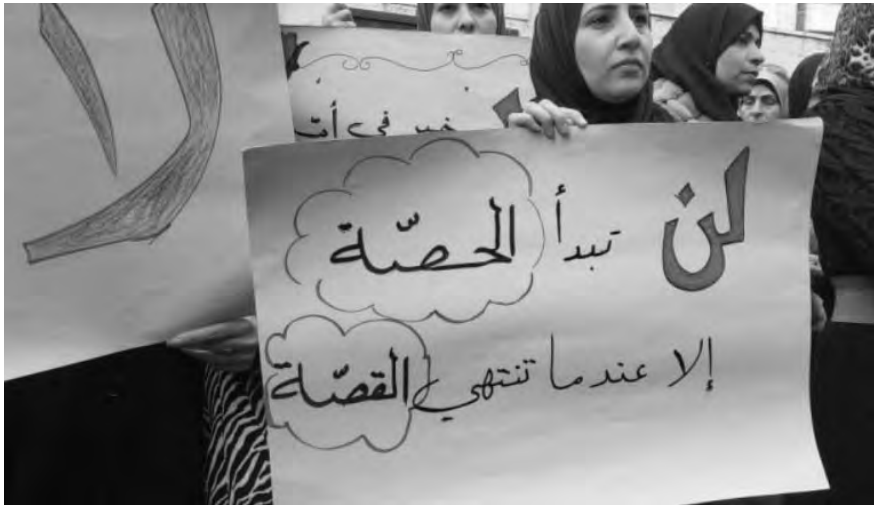 لا
خير في أمّة
لن تبدأ الحصّة
إلا عندما تنتهي القصّة